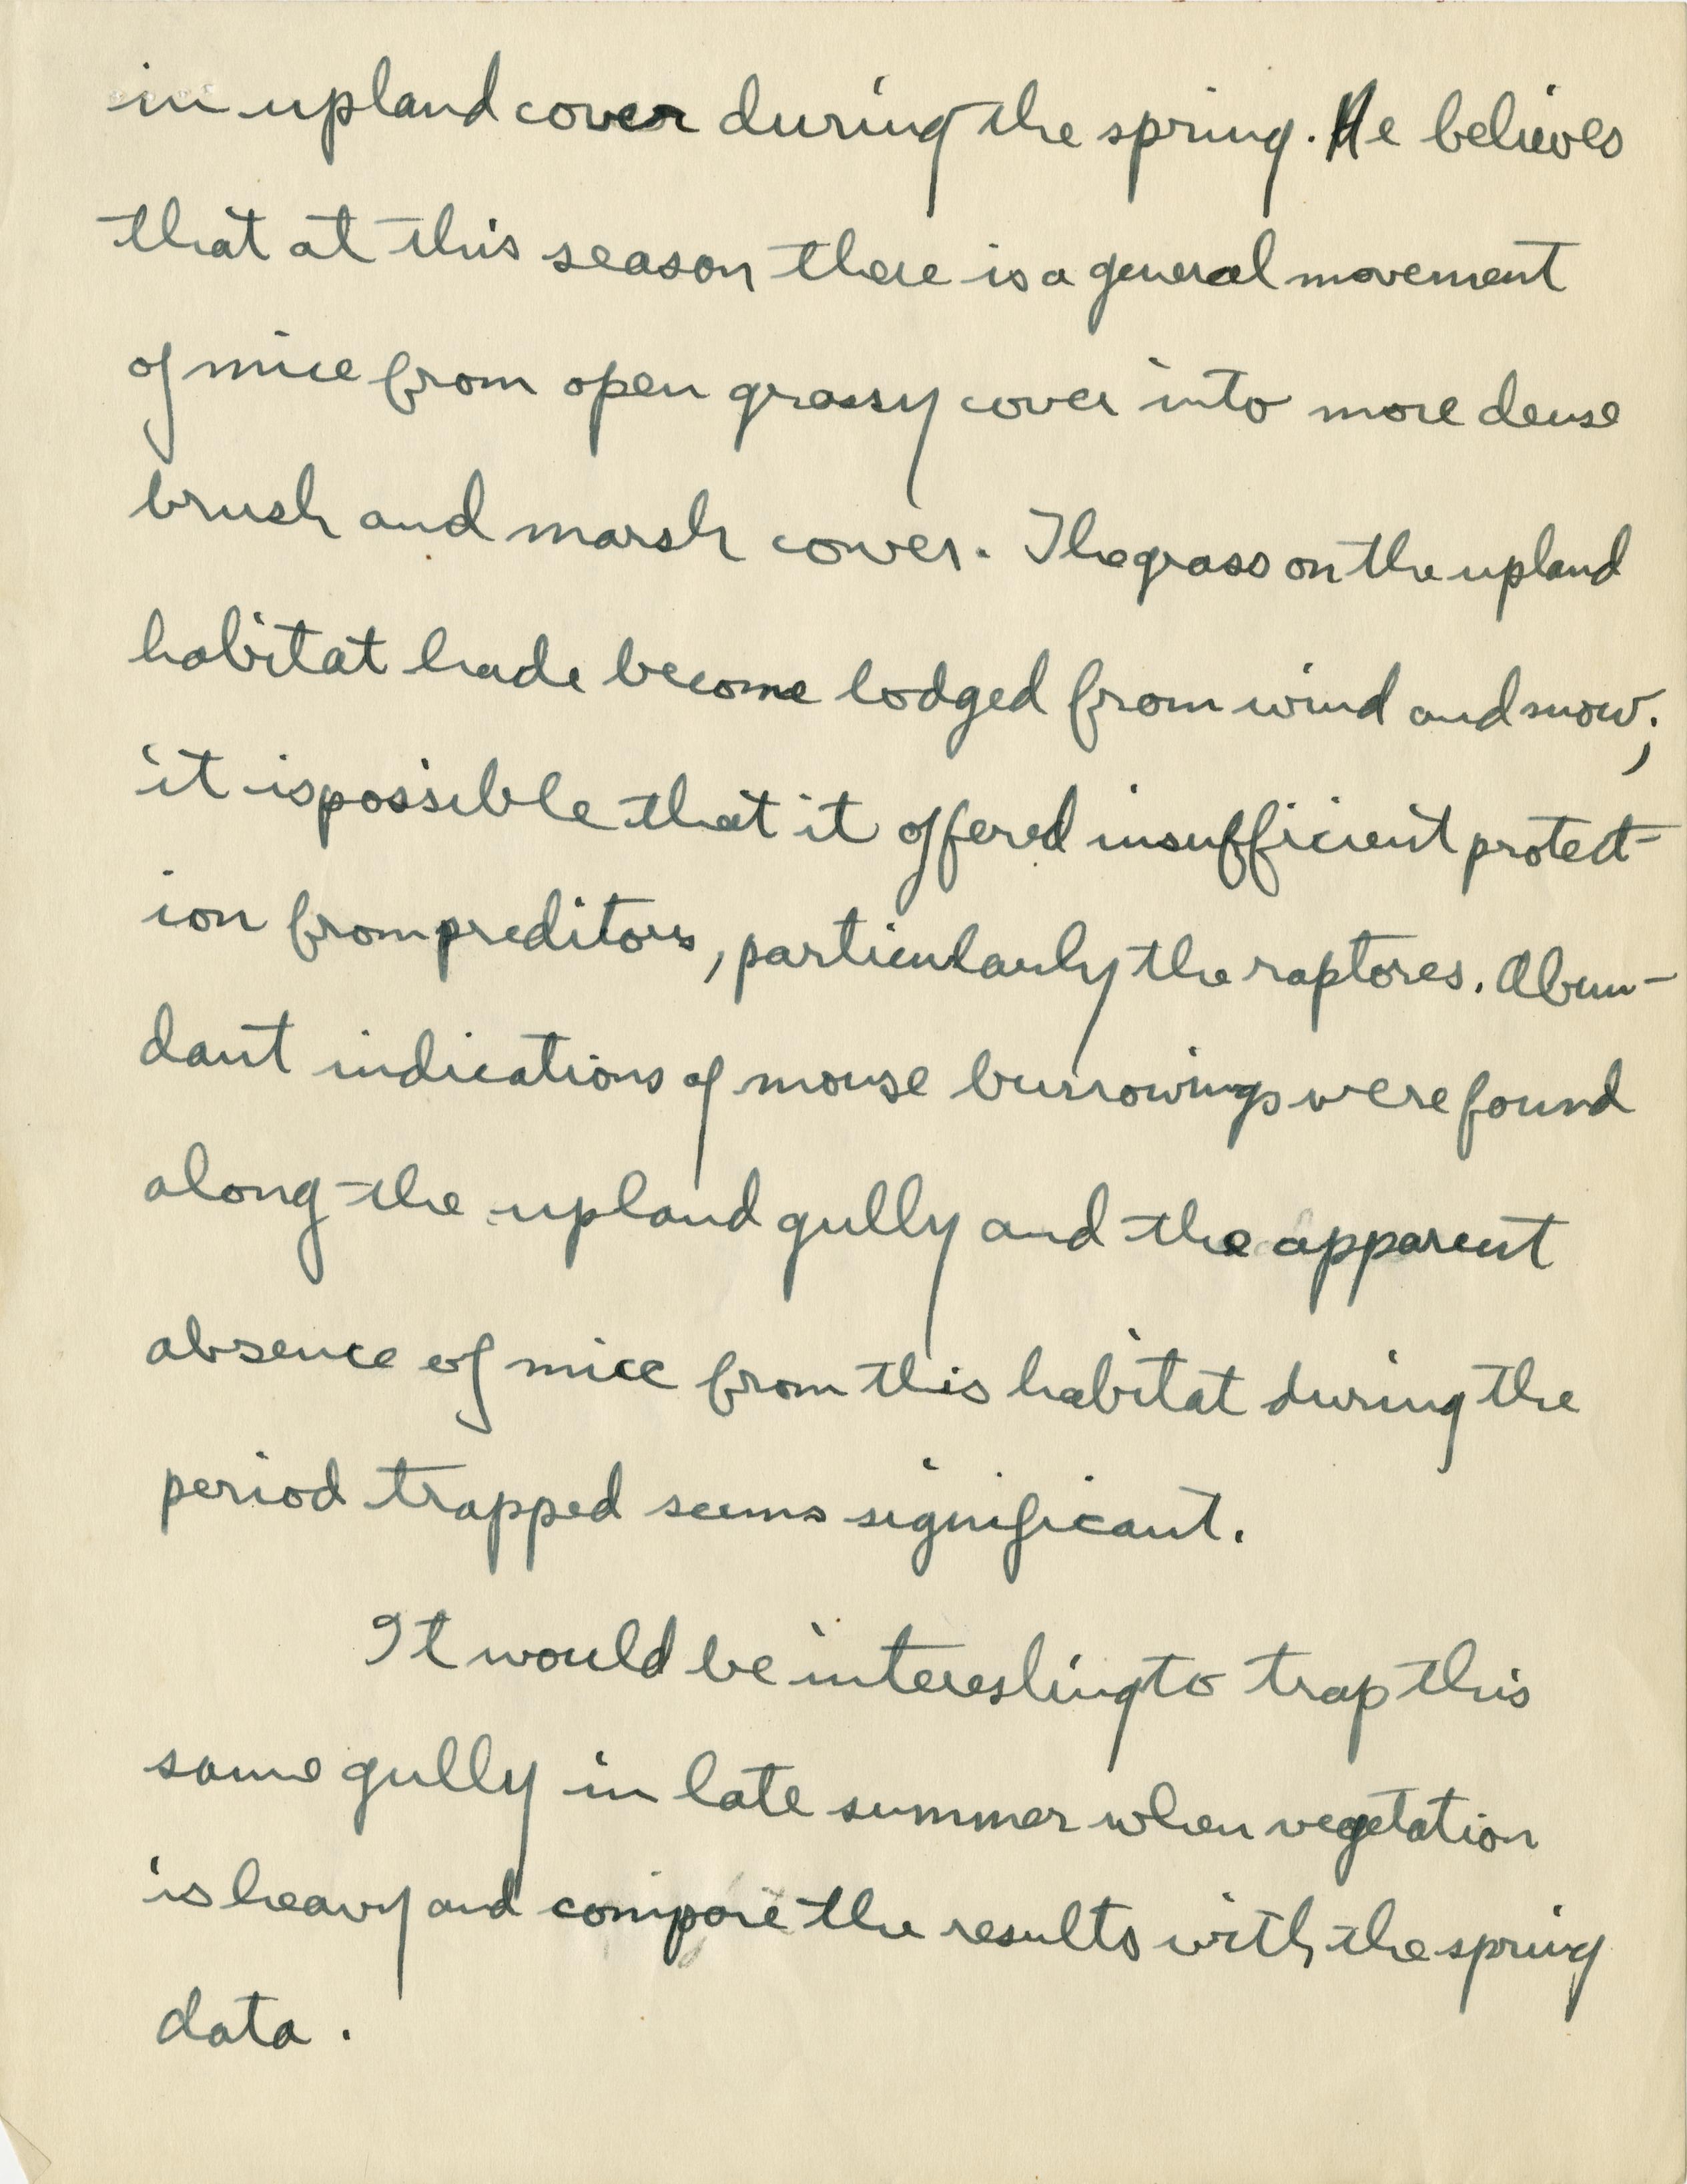 in upland cover during the spring. He believes
that at this season there is a general movement
of mice from open grassy cover into more dense
brush and marsh cover. The grass on the upland
habitat hade become lodged from wind and snow;
it is possible that it offered insufficient protect-
ion from preditors, particularly the raptores. Abun-
dant indications of mouse burrowings were found
along the upland gully and the apparent
absence of mice from this habitat during the
period trapped seems significant.
It would be interesting to trap this
same gully in late summer when vegetation
is heavy and compare the results with the spring
data.